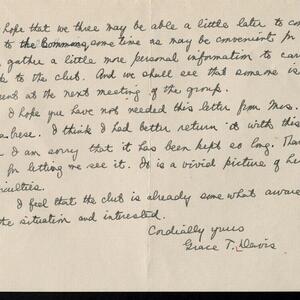 hope that we three may be able a little later to co
to the Commons, some time as may be convenient for
gather a little more personal information to car
to the club. And we shall see that someone is
ent at the next meeting of the group.
I hope you have not needed this letter from Mrs.
I think I had better return it with this
I am sorry that it has been kept so long. Than
for letting me see it. It is a vivid picture of he
culties.
I feel that the club is already some what aware
the situation and interested.
Cordially yours
Grace T. Davis